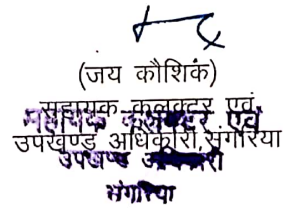 (जय कौशिक)
सहायक कलक्टर एवं
उपखण्ड अधिकारी, संगरिया
सहायक कलक्टर एवं
उपखण्ड अधिकारी
संगरिया